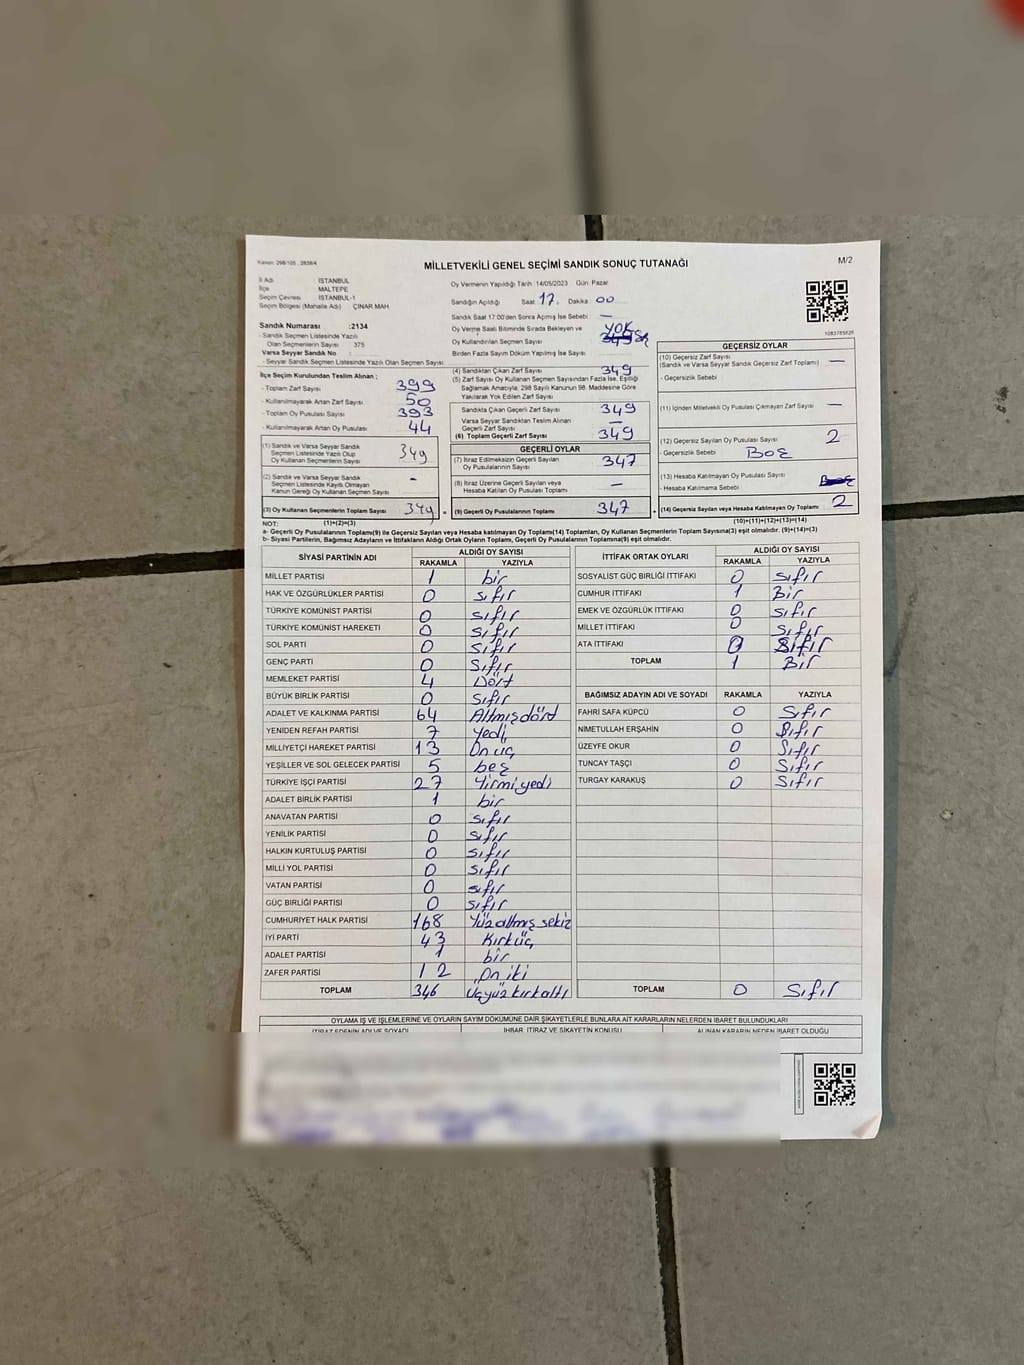 Kanun: 298/105, 2839/4
MİLLETVEKİLİ GENEL SEÇİMİ SANDIK SONUÇ TUTANAĞI
M/2
İl Adı İSTANBUL
İlçe MALTEPE
Seçim Çevresi İSTANBUL-1
Seçim Bölgesi (Mahalle Adı) ÇINAR MAH.
Sandık Numarası :2134
- Sandık Seçmen Listesinde Yazılı
Olan Seçmenlerin Sayısı 375
Varsa Seyyar Sandık No :
- Seyyar Sandık Seçmen Listesinde Yazılı Olan Seçmen Sayısı:
İlçe Seçim Kurulundan Teslim Alınan ;
- Toplam Zarf Sayısı 399
- Kullanılmayarak Artan Zarf Sayısı 50
- Toplam Oy Pusulası Sayısı 393
- Kullanılmayarak Artan Oy Pusulası 44
(1) Sandık ve Varsa Seyyar Sandık
Seçmen Listesinde Yazılı Olup
Oy Kullanan Seçmenlerin Sayısı 349
(2) Sandık ve Varsa Seyyar Sandık
Seçmen Listesinde Kayıtlı Olmayan
Kanun Gereği Oy Kullanan Seçmen Sayısı -
(3) Oy Kullanan Seçmenlerin Toplam Sayısı 349
Oy Vermenin Yapıldığı Tarih :14/05/2023 Gün: Pazar
Sandığın Açıldığı Saat 17. Dakika 00
Sandık Saat 17:00'den Sonra Açımış İse Sebebi -
Oy Verme Saati Bitiminde Sırada Bekleyen ve YOK
Oy Kullandırılan Seçmen Sayısı 349
Birden Fazla Sayım Döküm Yapılmış İse Sayısı:
(4) Sandıktan Çıkan Zarf Sayısı 349
(5) Zarf Sayısı Oy Kullanan Seçmen Sayısından Fazla İse, Eşitliği
Sağlamak Amacıyla, 298 Sayılı Kanunun 98. Maddesine Göre
Yakılarak Yok Edilen Zarf Sayısı
Sandıkta Çıkan Geçerli Zarf Sayısı 349
Varsa Seyyar Sandıktan Teslim Alınan
Geçerli Zarf Sayısı -
(6) Toplam Geçerli Zarf Sayısı 349
GEÇERLİ OYLAR
(7) İtiraz Edilmeksizin Geçerli Sayılan
Oy Pusulalarının Sayısı 347
(8) İtiraz Üzerine Geçerli Sayılan veya
Hesaba Katılan Oy Pusulası Toplamı -
= (9) Geçerli Oy Pusulalarının Toplamı 347
1083785825
GEÇERSİZ OYLAR
(10) Geçersiz Zarf Sayısı
(Sandık ve Varsa Seyyar Sandık Geçersiz Zarf Toplamı) -
- Geçersizlik Sebebi
(11) İçinden Milletvekili Oy Pusulası Çıkmayan Zarf Sayısı -
(12) Geçersiz Sayılan Oy Pusulası Sayısı 2
- Geçersizlik Sebebi BOŞ
(13) Hesaba Katılmayan Oy Pusulası Sayısı
- Hesaba Katılmama Sebebi
+ (14) Geçersiz Sayılan veya Hesaba Katılmayan Oy Toplamı 2
NOT: (1)+(2)=(3) (10)+(11)+(12)+(13)=(14)
a- Geçerli Oy Pusulalarının Toplamı(9) ile Geçersiz Sayılan veya Hesaba katılmayan Oy Toplamı(14) Toplamları, Oy Kullanan Seçmenlerin Toplam Sayısına(3) eşit olmalıdır. (9)+(14)=(3)
b- Siyasi Partilerin, Bağımsız Adayların ve İttifakların Aldığı Ortak Oyların Toplamı, Geçerli Oy Pusulalarının Toplamına(9) eşit olmalıdır.
SİYASİ PARTİNİN ADI ALDIĞI OY SAYISI
RAKAMLA YAZIYLA
MİLLET PARTİSİ 1 bir
HAK VE ÖZGÜRLÜKLER PARTİSİ 0 sıfır
TÜRKİYE KOMÜNİST PARTİSİ 0 sıfır
TÜRKİYE KOMÜNİST HAREKETİ 0 sıfır
SOL PARTİ 0 sıfır
GENÇ PARTİ 0 sıfır
MEMLEKET PARTİSİ 4 Dört
BÜYÜK BİRLİK PARTİSİ 0 sıfır
ADALET VE KALKINMA PARTİSİ 64 Altmışdört
YENİDEN REFAH PARTİSİ 7 yedi
MİLLİYETÇİ HAREKET PARTİSİ 13 Onüç
YEŞİLLER VE SOL GELECEK PARTİSİ 5 beş
TÜRKİYE İŞÇİ PARTİSİ 27 Yirmiyedi
ADALET BİRLİK PARTİSİ 1 bir
ANAVATAN PARTİSİ 0 sıfır
YENİLİK PARTİSİ 0 sıfır
HALKIN KURTULUŞ PARTİSİ 0 sıfır
MİLLİ YOL PARTİSİ 0 sıfır
VATAN PARTİSİ 0 sıfır
GÜÇ BİRLİĞİ PARTİSİ 0 sıfır
CUMHURİYET HALK PARTİSİ 168 Yüzaltmış sekiz
İYİ PARTİ 43 Kırküç
ADALET PARTİSİ 1 bir
ZAFER PARTİSİ 12 Oniki
TOPLAM 346 Üçyüz kırkaltı
İTTİFAK ORTAK OYLARI ALDIĞI OY SAYISI
RAKAMLA YAZIYLA
SOSYALİST GÜÇ BİRLİĞİ İTTİFAKI 0 sıfır
CUMHUR İTTİFAKI 1 Bir
EMEK VE ÖZGÜRLÜK İTTİFAKI 0 sıfır
MİLLET İTTİFAKI 0 sıfır
ATA İTTİFAKI 0 Sıfır
TOPLAM 1 Bir
BAĞIMSIZ ADAYIN ADI VE SOYADI RAKAMLA YAZIYLA
FAHRİ SAFA KÜPCÜ 0 Sıfır
NİMETULLAH ERŞAHİN 0 Sıfır
ÜZEYFE OKUR 0 Sıfır
TUNCAY TAŞÇI 0 Sıfır
TURGAY KARAKUŞ 0 Sıfır
TOPLAM 0 Sıfır
OYLAMA İŞ VE İŞLEMLERİNE VE OYLARIN SAYIM DÖKÜMÜNE DAİR ŞİKAYETLERLE BUNLARA AİT KARARLARIN NELERDEN İBARET BULUNDUKLARI
İTİRAZ EDENİN ADI VE SOYADI İHBAR, İTİRAZ VE ŞİKAYETİN KONUSU ALINAN KARARIN NEDEN İBARET OLDUĞU